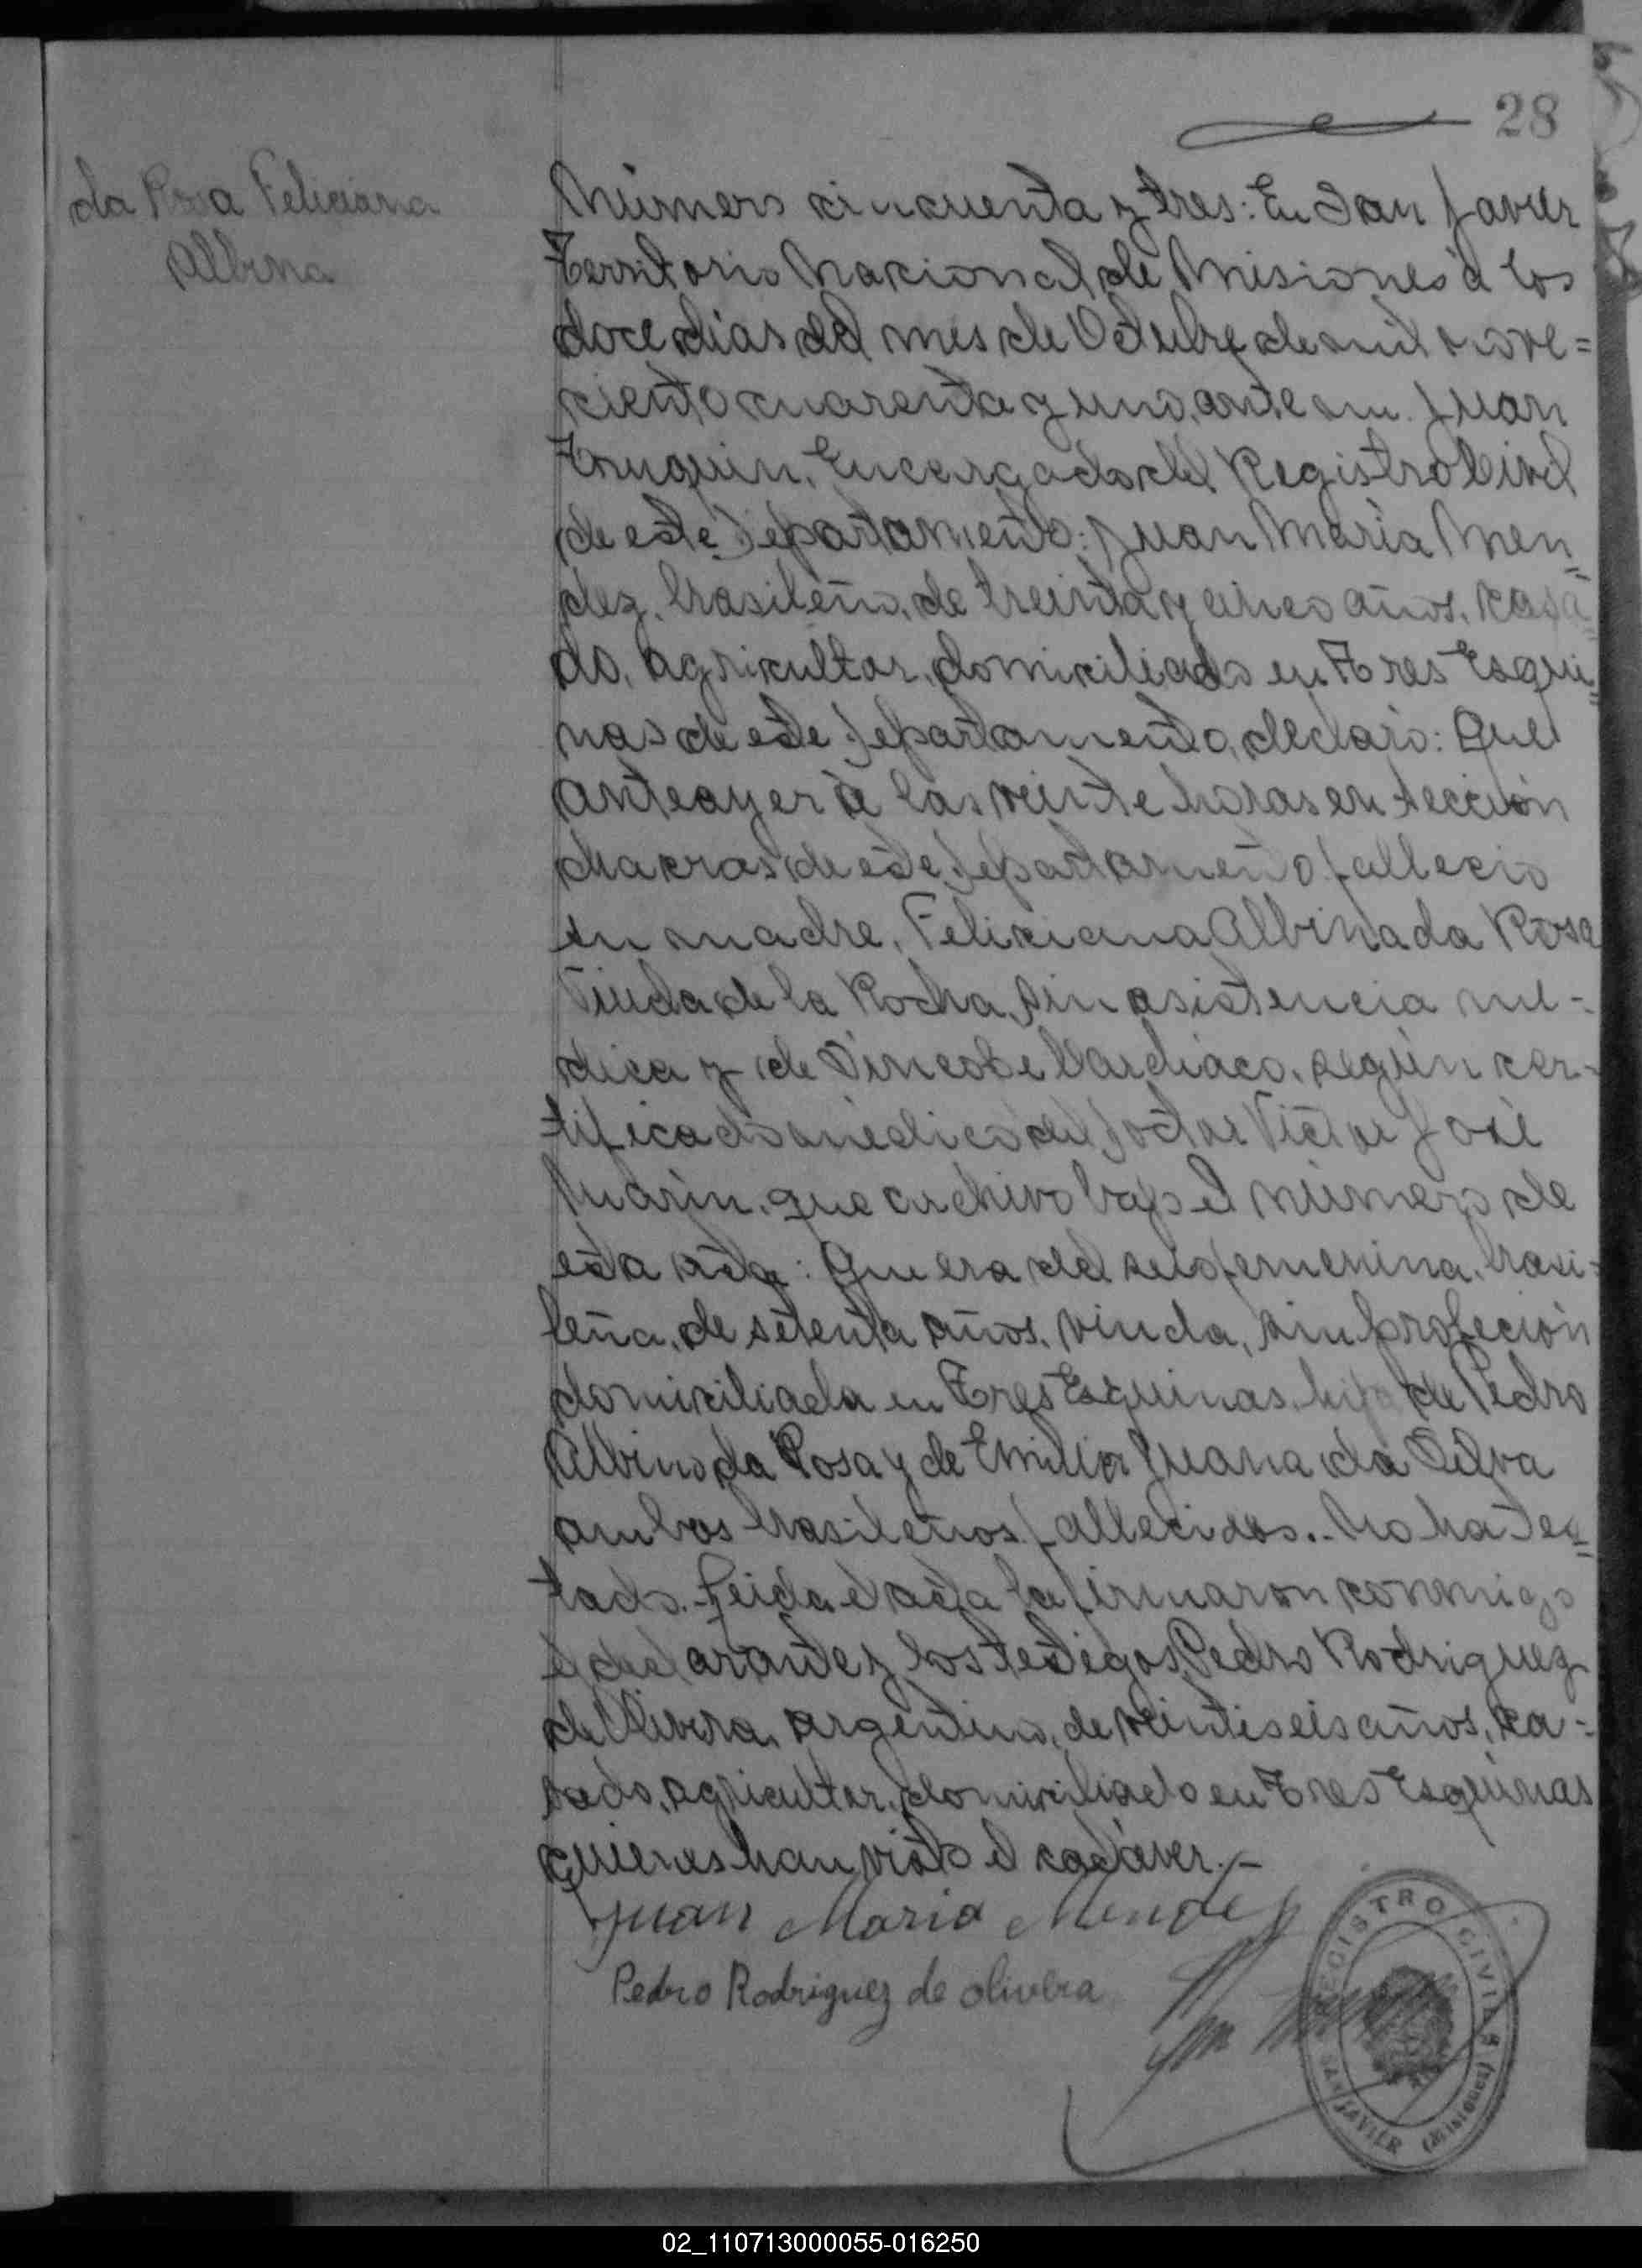 28
da Rosa Feliciana
Albina
Número cincuenta y tres: En San Javier
Territorio Nacional de Misiones á los
doce dias del mes de Octubre de mil nove=
ciento cuarenta y uno, ante mi Juan
Encargado del Registro Civil
de este Departamento: Juan María Men=
dez, brasileño, de treinta y cinco años, casa=
do, agricultor, domiciliado en Tres Esqui=
nas de este Departamento, declaró: Que
anteayer á las veinte horas en sección
chacras de este Departamento falleció
su madre, Feliciana Albina da Rosa
Viuda de la Rocha, sin asistencia mé-
dica y de Síncope Cardíaco, según cer-
tificado médico del Doctor Victor José
Marín, que archivo bajo el número de
esta acta: Que era del sexo femenina, brasi=
leña, de setenta años, viuda, sin profeción
domiciliada en Tres Esquinas, hija de Pedro
Albino da Rosa y de Emilia Juana da Silva
ambos brasileños fallecidos.. No ha tes=
tado. Leida el acta la firmaron conmigo
el declarante y los testigos Pedro Rodriguez
de Olivera, argentino, de veintiseis años, ca=
sado, agricultor, domiciliado en Tres Esquinas
quienes han visto el cadáver.-
Juan Maria Mendez
Pedro Rodriguez de oliveira
REGISTRO CIVIL
SAN JAVIER (Misiones)
02_110713000055-016250